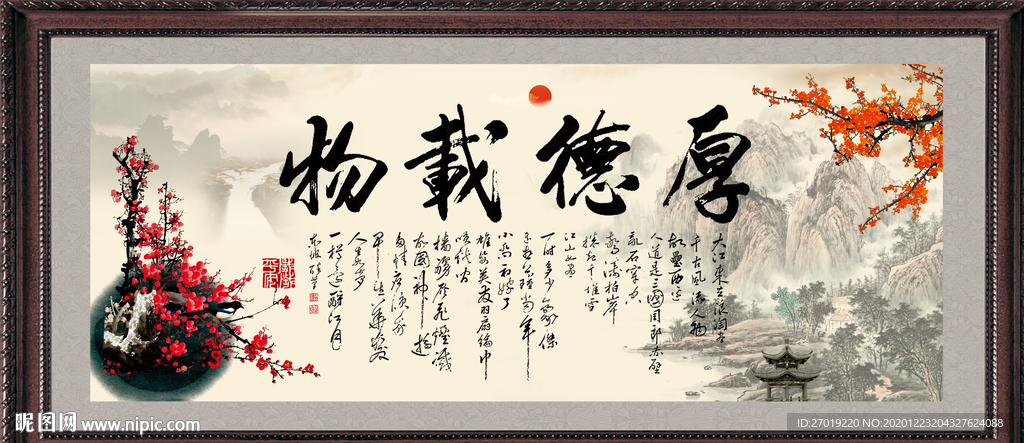 厚德載物
大江東去浪淘盡
千古風流人物
故壘西邊
人道是三國周郎赤壁
亂石穿空
驚濤拍岸
捲起千堆雪
江山如畫
一時多少豪傑
遙想公瑾當年
小喬初嫁了
雄姿英發羽扇綸巾
談笑間
檣櫓灰飛煙滅
故國神遊
多情應笑我
早生華髮
人生如夢
一樽還酹江月
東坡
昵图网 www.nipic.com
ID:27019220 NO:20201223204327624088